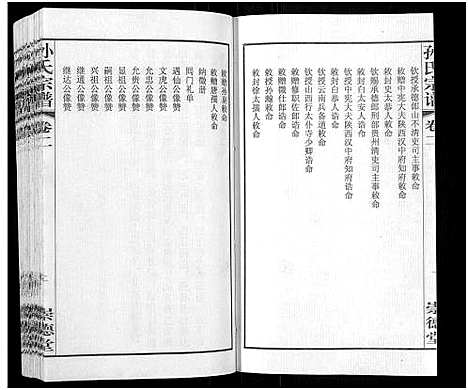 孙氏宗谱
卷二
崇德堂
钦赐承德郎山不清吏司主事敕命
敕赠中宪大夫陕西汉中府知府敕命
敕封史太恭人敕命
敕赠承德郎刑部贵州清吏司主事敕命
敕封白太安人诰命
敕赠中宪大夫陕西汉中府知府诰命
敕封白恭人诰命
钦授云南兵备道敕命
钦授山西行太仆寺少卿诰命
敕赠修职佐郎诰命
敕赠徵仕郎诰命
敕封孙瀚敕命
敕封徐太孺人敕命
敕赠唐孺人敕命
纳徵谱
同门礼单
遇仙公像赞
文虎公像赞
允忠公像赞
允贵公像赞
显祖公像赞
嗣祖公像赞
兴祖公像赞
继达公像赞
孙氏宗谱
卷二
崇德堂